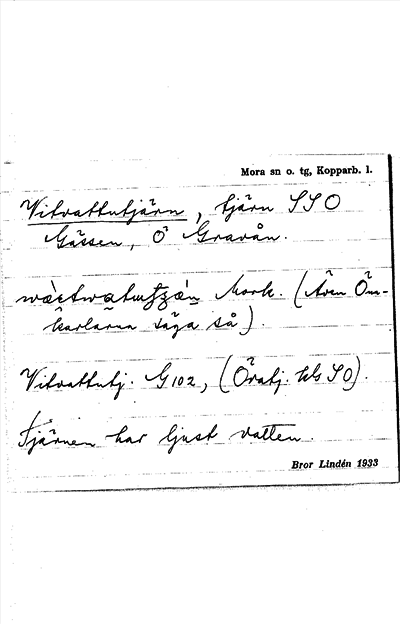 Mora sn o. tg, Kopparb. l.
Vitvattutjärn, tjärn SSO
Gässen, Ö Gravån.
Mork. (Även Öm-
karlarna säga så).
Vitvattutj. G 102, (Öratj. hls SO).
Tjärnen har ljust vatten.
Bror Lindén 1933